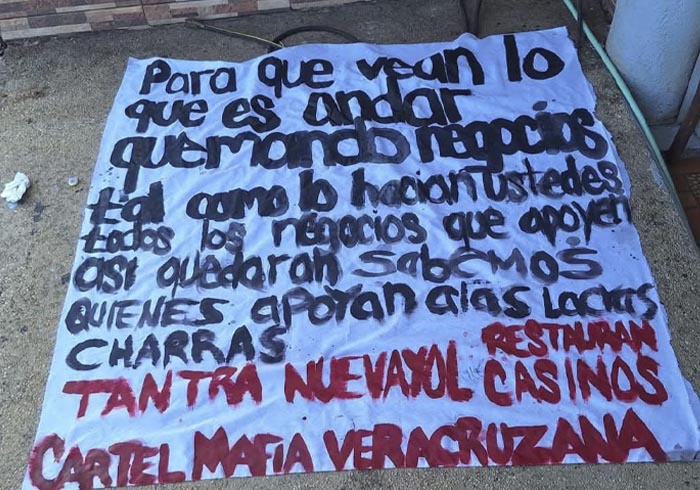 Para que vean lo
que es andar
quemando negocios
tal como lo hacian ustedes
todos los negocios que apoyen
asi quedaran SABEMOS
QUIENES apoyan a las LACRAS
CHARRAS
RESTAURAN
TANTRA NUEVAYOL CASINOS
CARTEL MAFIA VERACRUZANA